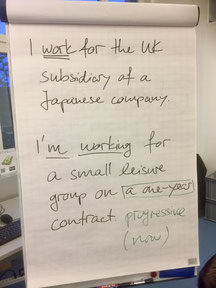 I work for the UK
subsidiary of a
Japanese company.
I'm working for
a small leisure
group on a one-year
contract. progressive
(now)